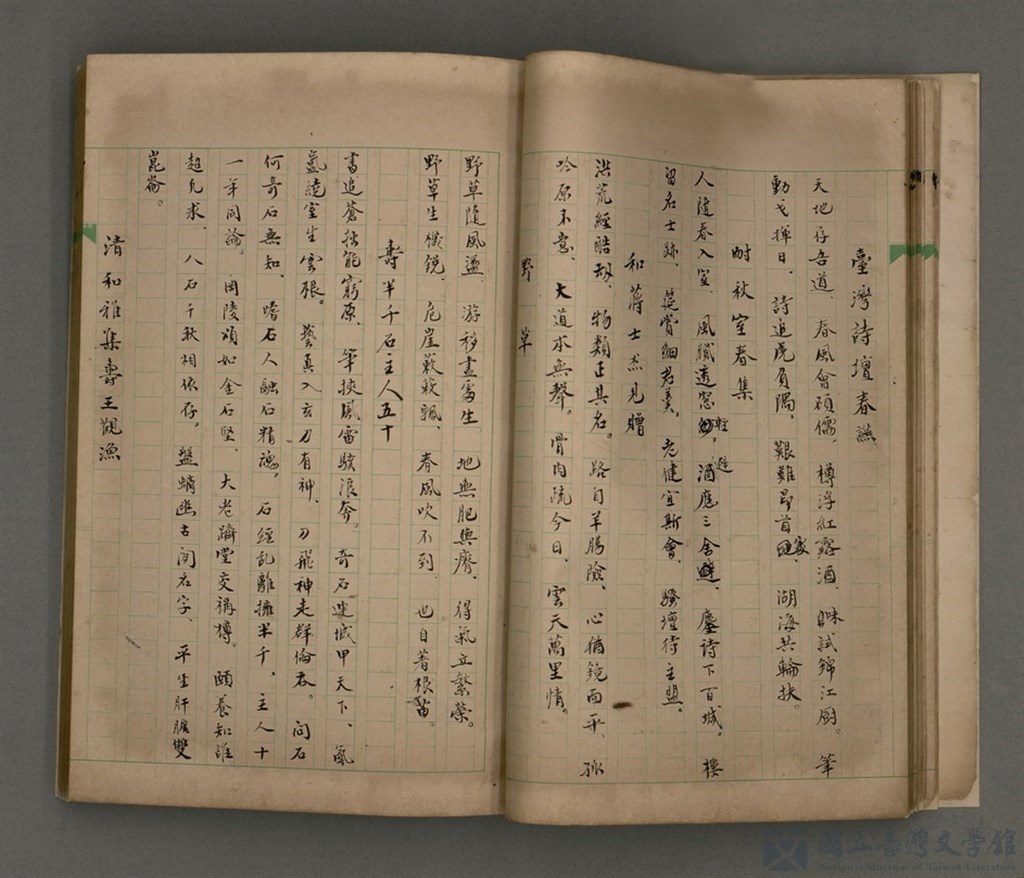 臺灣詩壇春讌
天地存吾道、春風會碩儒、樽浮紅露酒、味試錦江廚。筆
動戈揮日、詩追虎負隅、艱難昂首、湖海共輪扶。
耐秋室春集
人隨春入室、風膩透窓輕、酒應三舍避、鏖詩下百城。樓
留名士跡、筵賞細君羹。老健宜斯會、騷壇待主盟。
和蔣士杰見贈
洪荒經浩劫、物類正其名。路自羊腸險、心循鏡面平、孤
吟原不意、大道本無聲。骨肉疏今日、雲天萬里情。
野草
野草隨風盪、游移盡處生 地無肥與瘠、得氣立繁榮。
野草生機銳、危崖蔌蔌飄、春風吹不到、也自着根苗。
壽半千石主人五十
書追蒼拙能窮原、筆挾風雷駭浪奔。奇石連城甲天下、氤
氳繞室生雲根。藝真入玄刀有神、刀飛神走群倫吞。問石
何奇石無知、嗜石人融石精魂。石經乱離擁半千，主人十
一羊同論。岡陵頌如金石堅、大老躋堂交稱樽。頤養知誰
超凡求、八石千秋相依存，盤螭幽古閒名字、平生肝膽雙
崑崙。
清和雅集壽王觀漁
國立臺灣文學館
National Museum of Taiwan Literature